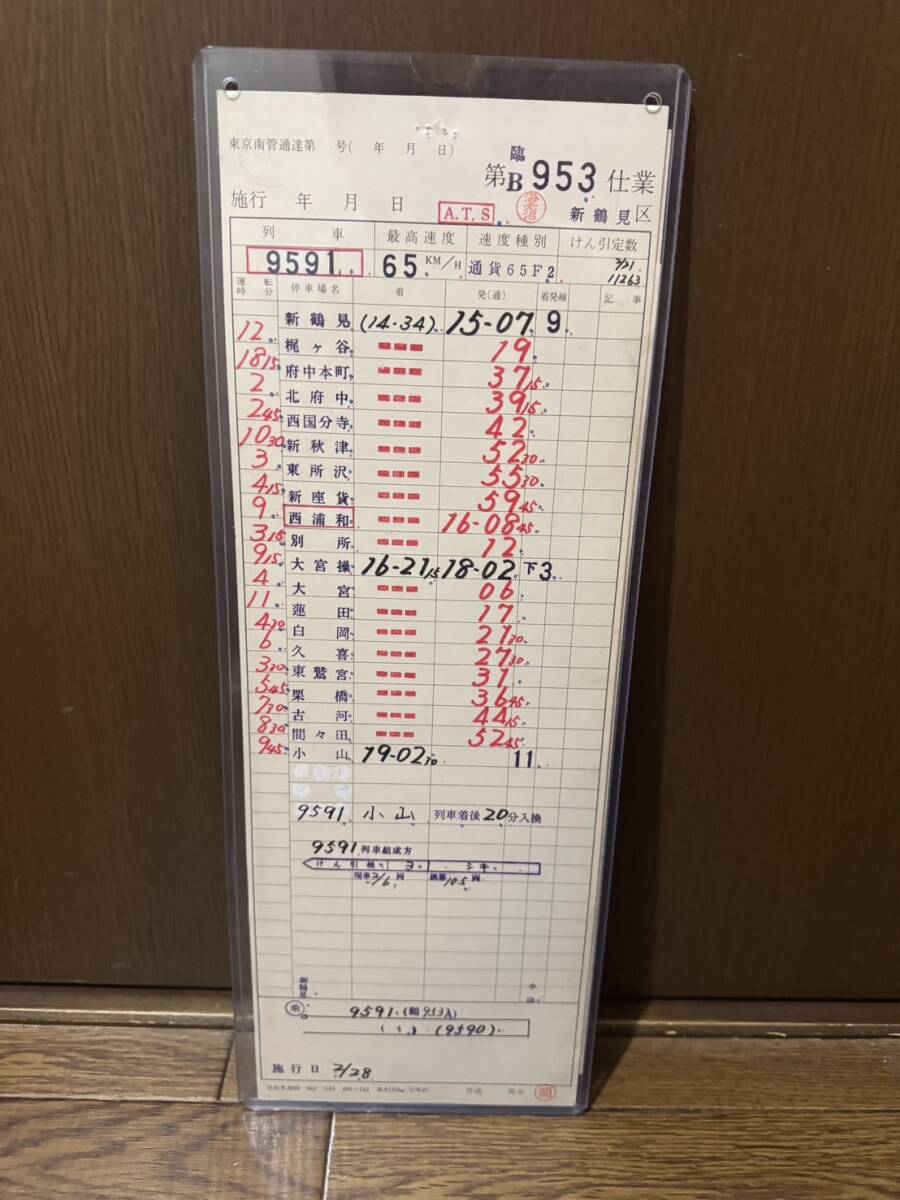 東京南管通達第 号( 年 月 日)
臨
第B953仕業
施行 年 月 日 A.T.S 新鶴見区
列車 最高速度 速度種別 けん引定数
9591 65 KM/H 通貨65F2 11263
運転時分 停車場名 着 発(通) 着発線 記事
新鶴見 (14-34) 15-07 9
12 梶ヶ谷 19
18 15 府中本町 37 15
2 北府中 39 15
2 45 西国分寺 42
10 30 新秋津 52 30
3 東所沢 55 30
4 15 新座貨 59 45
9 西浦和 16-08 45
3 15 別所 12
9 15 大宮操 16-21 15 18-02 下3
4 大宮 06
11 蓮田 17
4 30 白岡 21 30
6 久喜 27 30
3 30 東鷲宮 31
5 45 栗橋 36 45
7 30 古河 44 15
8 30 間々田 52 45
9 45 小山 19-02 30 11
9591 小山 列車着後20分入換
9591列車組成方
けん引機 ヨ シキ
現車2/6両 換算10.5両
新鶴見 小山
乗 9591 (臨953入)
(〃) (9590)
施行日 2/28